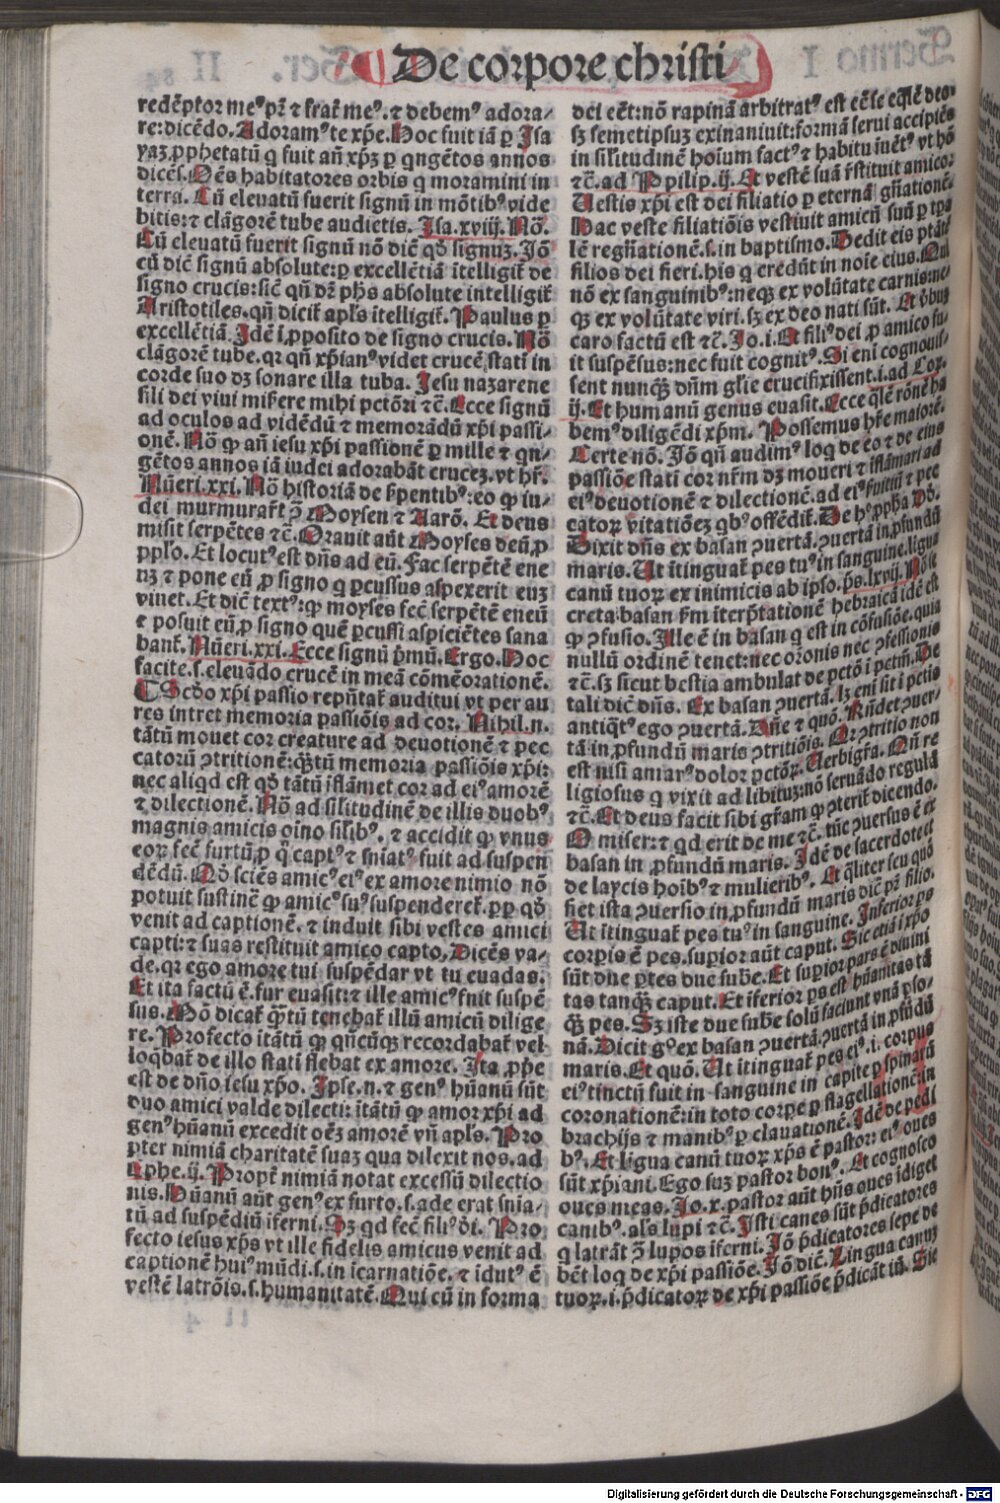 De corpore christi
redēptor meꝰ pr̄ ⁊ frat̄ meꝰ. ⁊ debemꝰ adora⸗
re: dicēdo. Adoramꝰ te xp̄e. Hoc fuit iā ꝑ Isa
yaꝫ ꝓphetatū q̇ fuit añ xp̄ꝫ ꝑ q̇ngētos annos
dicēs. Oēs habitatores orbis q̇ moramini in
terra. Cū eleuatū fuerit signū in mōtibꝰ vide
bitis: ⁊ clāgorē tube audietis. Isa. xviij. Nō.
Cū eleuatū fuerit signū nō dic̄ qd̄ signuꝫ. Iō
cū dic̄ signū absolute: ꝑ excellētiā ītelligit̄ de
signo crucis: sic̄ qn̄ dr̄ ph̄s absolute intelligit̄
Aristotiles. qn̄ dicit̄ apl̄s ītelligit̄. Paulus ꝑ
excellētiā. Idē ī ꝓposito de signo crucis. Nō
clāgorē tube. qꝛ qn̄ xp̄ianꝰ videt crucē stati in
corde suo dꝫ sonare illa tuba. Iesu nazarene
fili dei viui miserere mihi pctōri ⁊c̄. Ecce signū
ad oculos ad vidēdū ⁊ memorādū xp̄i passi⸗
onē. Nō ꝙ añ iesu xp̄i passionē ꝑ mille ⁊ qn⸗
gētos annos iā iudei adorabāt cruceꝫ. vt hr̄.
Nūeri. xxi. Nō historiā de s̄pentibꝰ: eo ꝙ iu⸗
dei murmurar̄t ꝯ̄ Moysen ⁊ Aarō. Et deus
misit serpētes ⁊c̄. Orauit aūt Moyses deū ꝓ
ppl̄o. Et locutꝰ est dn̄s ad eū. Fac serpētē ene
uꝫ ⁊ pone eū ꝓ signo q̇ ꝑcussus aspexerit euꝫ
viuet. Et dic̄ textꝰ: ꝙ moyses fec̄ serpētē eneū
⁊ posuit eū ꝓ signo quē ꝑcussi aspiciētes sana
bant̄. Nūeri. xxi. Ecce signū p̄mū. Ergo. Hoc
facite. s. eleuādo crucē in meā cōmēorationē.
Scd̄o xp̄i passio repūtat̄ auditui vt per au
res intret memoria passiōis ad cor. Nihil. n.
tātū mouet cor creature ad deuotionē ⁊ pec
catorū ꝯtritionē: q̄ꝫtū memoria passiōis xp̄i:
nec aliqd est qd̄ tātū īflāmet cor ad eiꝰ amorē
⁊ dilectionē. Nō ad silitudinē de illis duobꝰ
magnis amicis oīno sil̄ibꝰ. ⁊ accidit ꝙ vnus
eoꝝ fec̄ furtū ꝓ q̄ captꝰ ⁊ sniatꝰ fuit ad suspen
dēdū. Qd̄ sciēs amicꝰ eiꝰ ex amore nimio nō
potuit sustinē ꝙ amicꝰ suꝰ suspenderet̄. ꝓp qd̄
venit ad captionē. ⁊ induit sibi vestes amici
capti: ⁊ suas restituit amico capto. Dicēs va⸗
de. qꝛ ego amore tui suspēdar vt tu euadas.
Et ita factū ē. fur euasit: ⁊ ille amicꝰ fuit suspē
sus. Mō dicat̄ q̄ꝫtū tenebat̄ illū amicū dilige
re. Profecto itātū ꝙ qn̄cūqꝫ recordabat̄ vel
loq̄bat̄ de illo stati flebat ex amore. Ita ꝓphe
est de dn̄o iesu xp̄o. Ipse. n. ⁊ genꝰ hūanū sūt
duo amici valde dilecti: ītātū ꝙ amor xp̄i ad
genꝰ hūanū excedit oēꝫ amorē vn̄ apl̄s. Pro
pter nimiā charitatē suaꝫ qua dilexit nos. ad
Ephe. ij. Propt̄ nimiā notat excessū dilectio
nis. Hūanū aūt genꝰ ex furto. s. ade erat snia⸗
tū ad suspēdiū iferni. Sꝫ qd fec̄ filiꝰ dei. Pro
fecto iesus xp̄s vt ille fidelis amicus venit ad
captionē huiꝰ mūdi. s. in īcarnatiōe. ⁊ īdutꝰ ē
vestē latrōis. s. humanitatē. Qui cū in forma
dei eēt: nō rapinā arbitratꝰ est eē se eq̄lē deo
sꝫ semetipsuꝫ exinaniuit: formā serui accipiēs
in sil̄itudinē hoīum factꝰ ⁊ habitu īuētꝰ vt hō
⁊c̄. ad Ppilip. ij. Et vestē suā r̄stituit amico:
Uestis xp̄i est dei filiatio ꝑ eternā gn̄ationē.
Hac veste filiatiōis vestiuit amicū suū ꝑ tpa
lē regn̄ationē. s. in baptismo. Dedit eis ptātē
filios dei fieri. his q̇ credūt in noīe eius. Qui
nō ex sanguinibꝰ: neqꝫ ex volūtate carnis: ne
qꝫ ex volūtate viri. sꝫ ex deo nati sūt. Et v̄bum
caro factū est ⁊c̄. Io. i. Et filiꝰ dei ꝓ amico fu
it suspēsus: nec fuit cognitꝰ. Si eni cognouis⸗
sent nunqꝫ dn̄m gl̄ie crucifixissent. i. ad Cor.
ij. Et humanū genus euasit. Ecce q̄lē rōnē ha
bemꝰ diligēdi xp̄m. Possemus hr̄e maiorē.
Certe nō. Iō qn̄ audimꝰ loq̇ de eo ⁊ de eius
passiōe stati cor nr̄m dꝫ moueri ⁊ īflāmari ad
eiꝰ deuotionē ⁊ dilectionē. ad eiꝰ fuitiū ⁊ pec
catoꝝ vitatiōeꝫ qbꝰ offēdit̄. De hꝰ ꝓpha Dd.
Dixit dn̄s ex basan ꝯuertā. ꝯuertā in ꝓfundū
maris. Ut ītinguat̄ pes tuꝰ in sanguine. ligua
canū tuoꝝ ex inimicis ab ipso. ps̄. lxvij. Nō ē
creta: basan s̄m īterp̄tationē hebraicā idē est
ꝙ ꝯfusio. Ille ē in basan q̇ est in cōfusiōe. quia
nullū ordinē tenet: nec oronis nec ꝯfessionis
⁊c̄. sꝫ sicut bestia ambulat de pctō ī petm̄. De
tali dic̄ dn̄s. Ex basan ꝯuertā. Iꝫ eni sit ī pctis
antiq̄tꝰ ego ꝯuertā. Dn̄e ⁊ quō. Rn̄det ꝯuer⸗
tā in ꝓfundū maris ꝯtritiōis. Nā ꝯtritio non
est nisi amarꝰ dolor pctōꝝ. Uerbigr̄a. Qn̄ re
ligiosus q̇ vixit ad libituꝫ: nō seruādo regulā
⁊c̄. Et deus facit sibi gr̄am ꝙ ꝑterit̄ dicendo.
O miser: ⁊ qd erit de me ⁊c̄. tūc ꝯuersus ē ex
basan in ꝓfundū maris. Idē de sacerdote ⁊
de laycis hoībꝰ ⁊ mulieribꝰ. Et q̄liter seu quō
fiet ista ꝯuersio in ꝓfundū maris dic̄ pr̄ filio.
Ut ītinguat̄ pes tuꝰ in sanguine. Inferior ps
corpis ē pes. supior aūt caput. Sic etiā ī xp̄o
sūt due ꝑtes due sub̄e. Et supior pars ē diuini
tas tanqꝫ caput. Et īferior ps est hūanitas tā
q̄ꝫ pes. Sꝫ iste due sub̄e solū faciunt vnā ꝑso⸗
nā. Dicit gͦ ex basan ꝯuertā. ꝯuertā in ꝓfūdū
maris. Et quō. Ut ītinguat̄ pes eiꝰ. i. corpus
eiꝰ tinctū fuit in sanguine in capite ꝑ spinarū
coronationē: in toto corpe ꝑ flagellationē: in
brachijs ⁊ manibꝰ ꝑ clauationē. Idē de pedi
bꝰ. Et ligua canū tuoꝝ xp̄s ē pastor: eiꝰ oues
sūt xp̄iani. Ego suꝫ pastor bonꝰ. Et cognosco
oues meas. Io. x. pastor aūt hn̄s oues īdiget
canibꝰ. als lupi ⁊c̄. Isti canes sūt p̄dicatores
q̇ latrāt ꝯ̄ lupos iferni. Iō p̄dicatores sepe de
bēt loq̇ de xp̄i passiōe. Iō dic̄. Lingua canuꝫ
tuoꝝ. i. p̄dicatoꝝ de xp̄i passiōe p̄dicāt iū. Sic
Digitalisierung gefördert durch die Deutsche Forschungsgemeinschaft - DFG